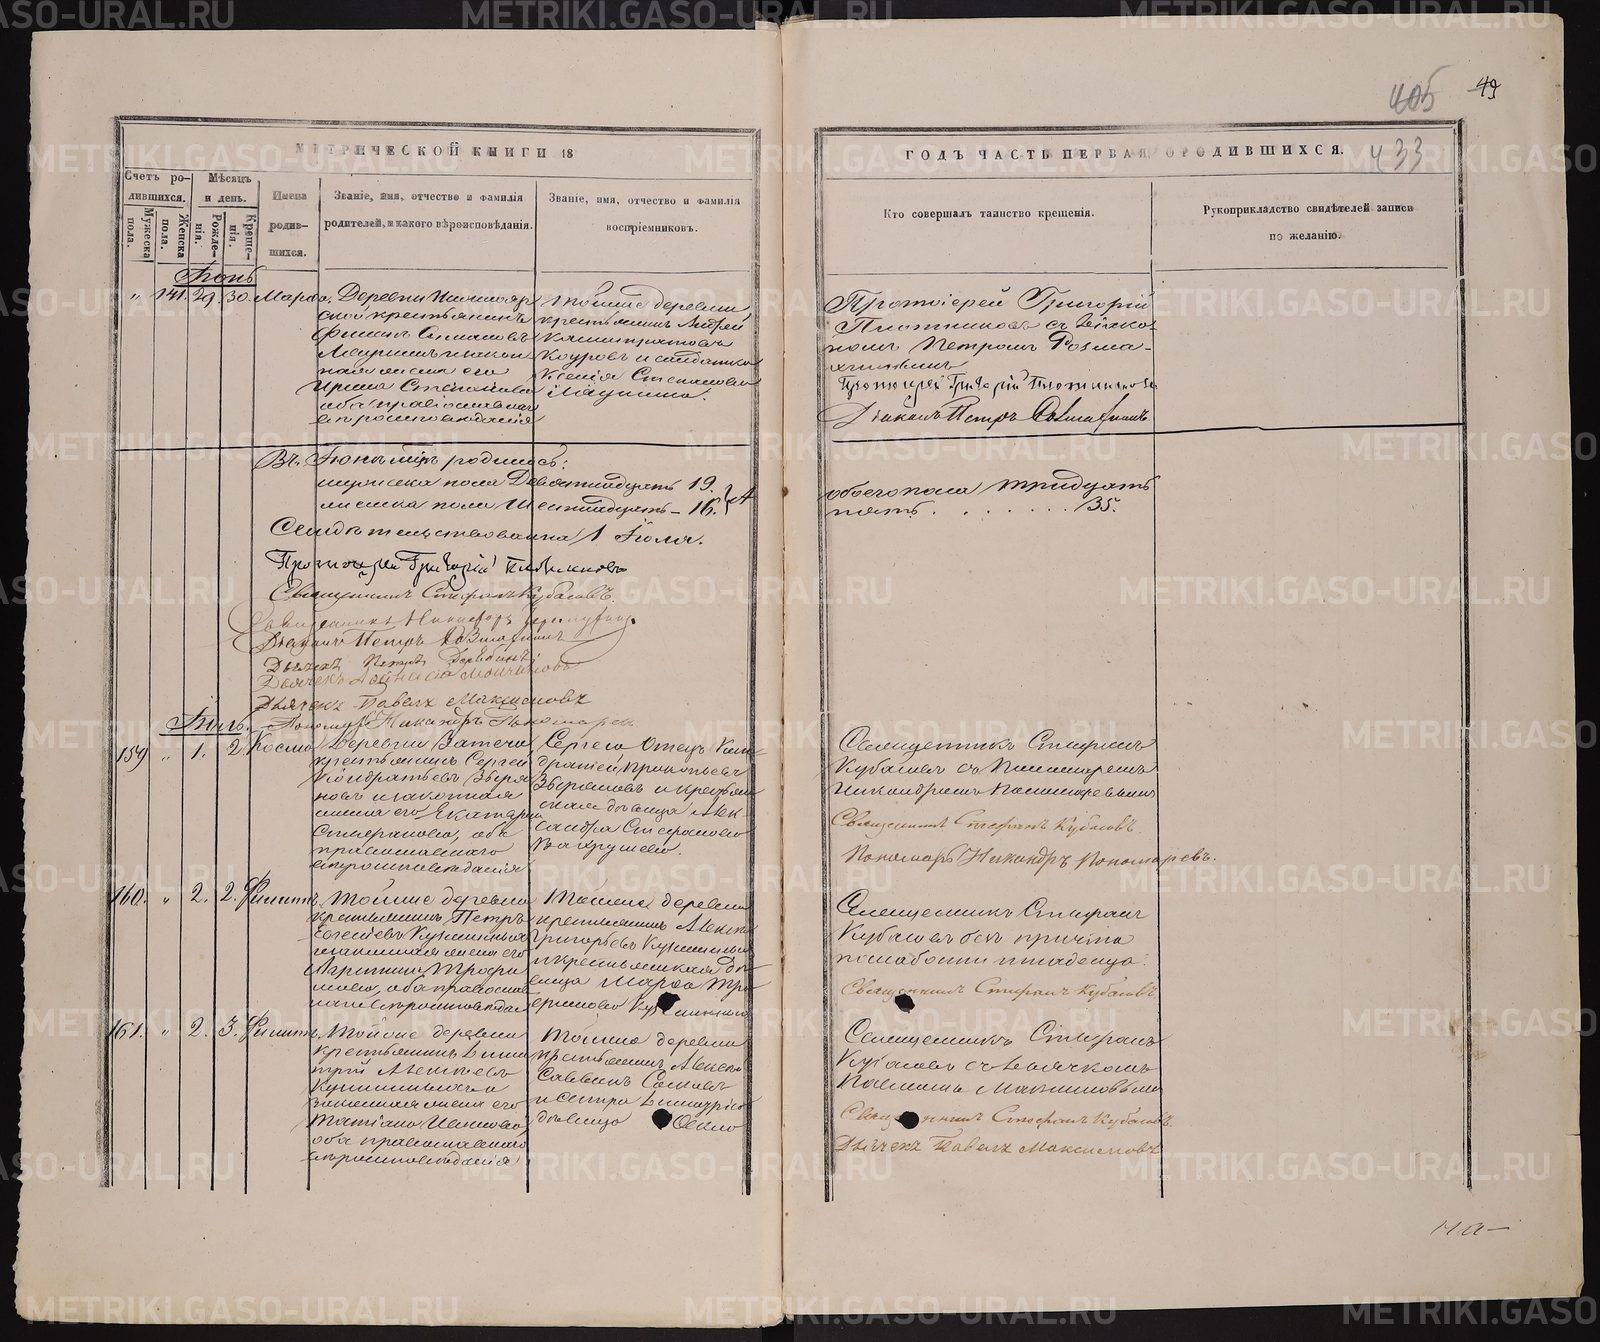 405 49
433
МЕТРИЧЕСКОЙ КНИГИ 18
ГОДЪ ЧАСТЬ ПЕРВАЯ О РОДИВШИХСЯ.
Счетъ ро-
дившихся.
Мужеска пола.
Женска пола.
Мѣсяцъ
и день.
Рожде-
нія.
Креще-
нія.
Имена
родив-
шихся.
Званіе, имя, отчество и фамилія
родителей, и какого вѣроисповѣданія.
Званіе, имя, отчество и фамилія
воспріемниковъ.
Кто совершалъ таинство крещенія.
Рукоприкладство свидѣтелей записи
по желанію.
Іюнь
" 141. 29. 30. Марѳа.
Деревни
крестьянинъ
жена его
Ирина Степанова
оба православнаго
вѣроисповѣданія
Тойже деревни
крестьянинъ Андрей
и солдатка
Ксенія Степанова
Протоіерей Григорій
Плотниковъ съ Діако-
номъ Петромъ Розма-
Протоіерей Григорій Плотниковъ
Діаконъ Петръ
Въ Іюнѣ м-цѣ родилось:
мужеска пола Девятнадцать 19.
женска пола Шестнадцать – 16.
обоего пола тридцать
пять . . . . . . . 35.
Свидѣтельствована 1 Іюля.
Протоіерей Григорій Плотниковъ
Священникъ Стефанъ Кубасовъ.
Священникъ Никифоръ
Діаконъ Петръ
Дьячекъ Петръ
Дьячекъ
Дьячекъ Павелъ Максимовъ
Пономарь Никандръ Пономаревъ
Іюль.
159 " 1. 2. Косма
Деревни
крестьянинъ Сергей
Кондратьевъ Зверя-
новъ и законная
жена его Екатерина
Стефанова, оба
православнаго
вѣроисповѣданія
Сергея Отецъ Кон-
дратій Прокопьевъ
Зверяновъ и крестьян-
ская дѣвица Алек-
сандра Стефанова
Вахрушева.
Священникъ Стефанъ
Кубасовъ съ Пономаремъ
Никандромъ Пономаревымъ
Священникъ Стефанъ Кубасовъ.
Пономарь Никандръ Пономаревъ.
160. " 2. 2. Филиппъ.
Тойже деревни
крестьянинъ Петръ
законная жена его
Агрипина Трофи-
мова, оба православ-
наго вѣроисповѣдан.
Тойже деревни
крестьянинъ Алексѣй
Григорьевъ
и крестьянская дѣ-
вица Марѳа Тро-
фимова
Священникъ Стефанъ
Кубасовъ безъ причта
по слабости младенца.
Священникъ Стефанъ Кубасовъ
161. " 2. 3. Филиппъ.
Тойже деревни
крестьянинъ Дими-
трій
законная жена его
Татіана Иванова,
оба православнаго
вѣроисповѣданія
Тойже деревни
крестьянинъ Алексѣй
Саввинъ
и сестра Димитрія
дѣвица
Священникъ Стефанъ
Кубасовъ съ Дьячкомъ
Павломъ Максимовымъ
Священникъ Стефанъ Кубасовъ.
Дьячекъ Павелъ Максимовъ
METRIKI.GASO-URAL.RU